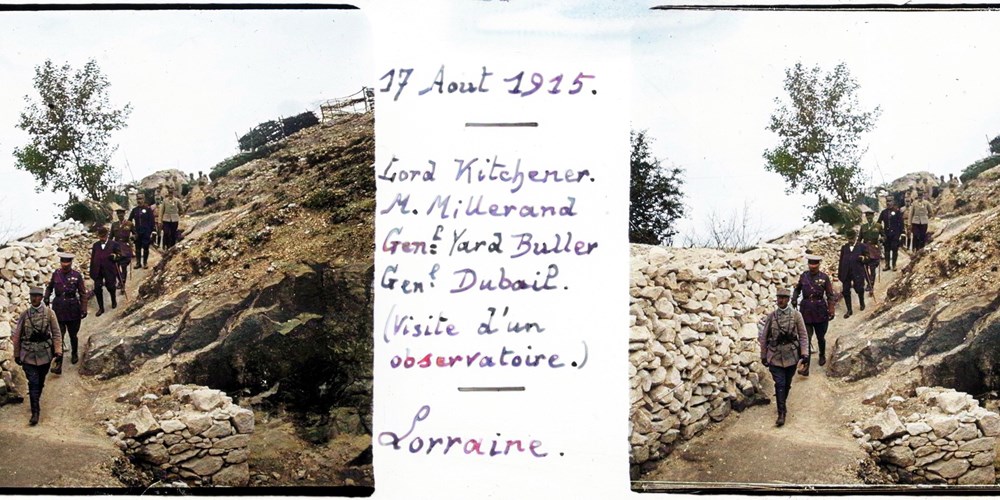 17 Aout 1915.
Lord Kitchener.
M. Millerand
Genl Yard Buller
Genl Dubail.
(Visite d'un
observatoire.)
Lorraine.